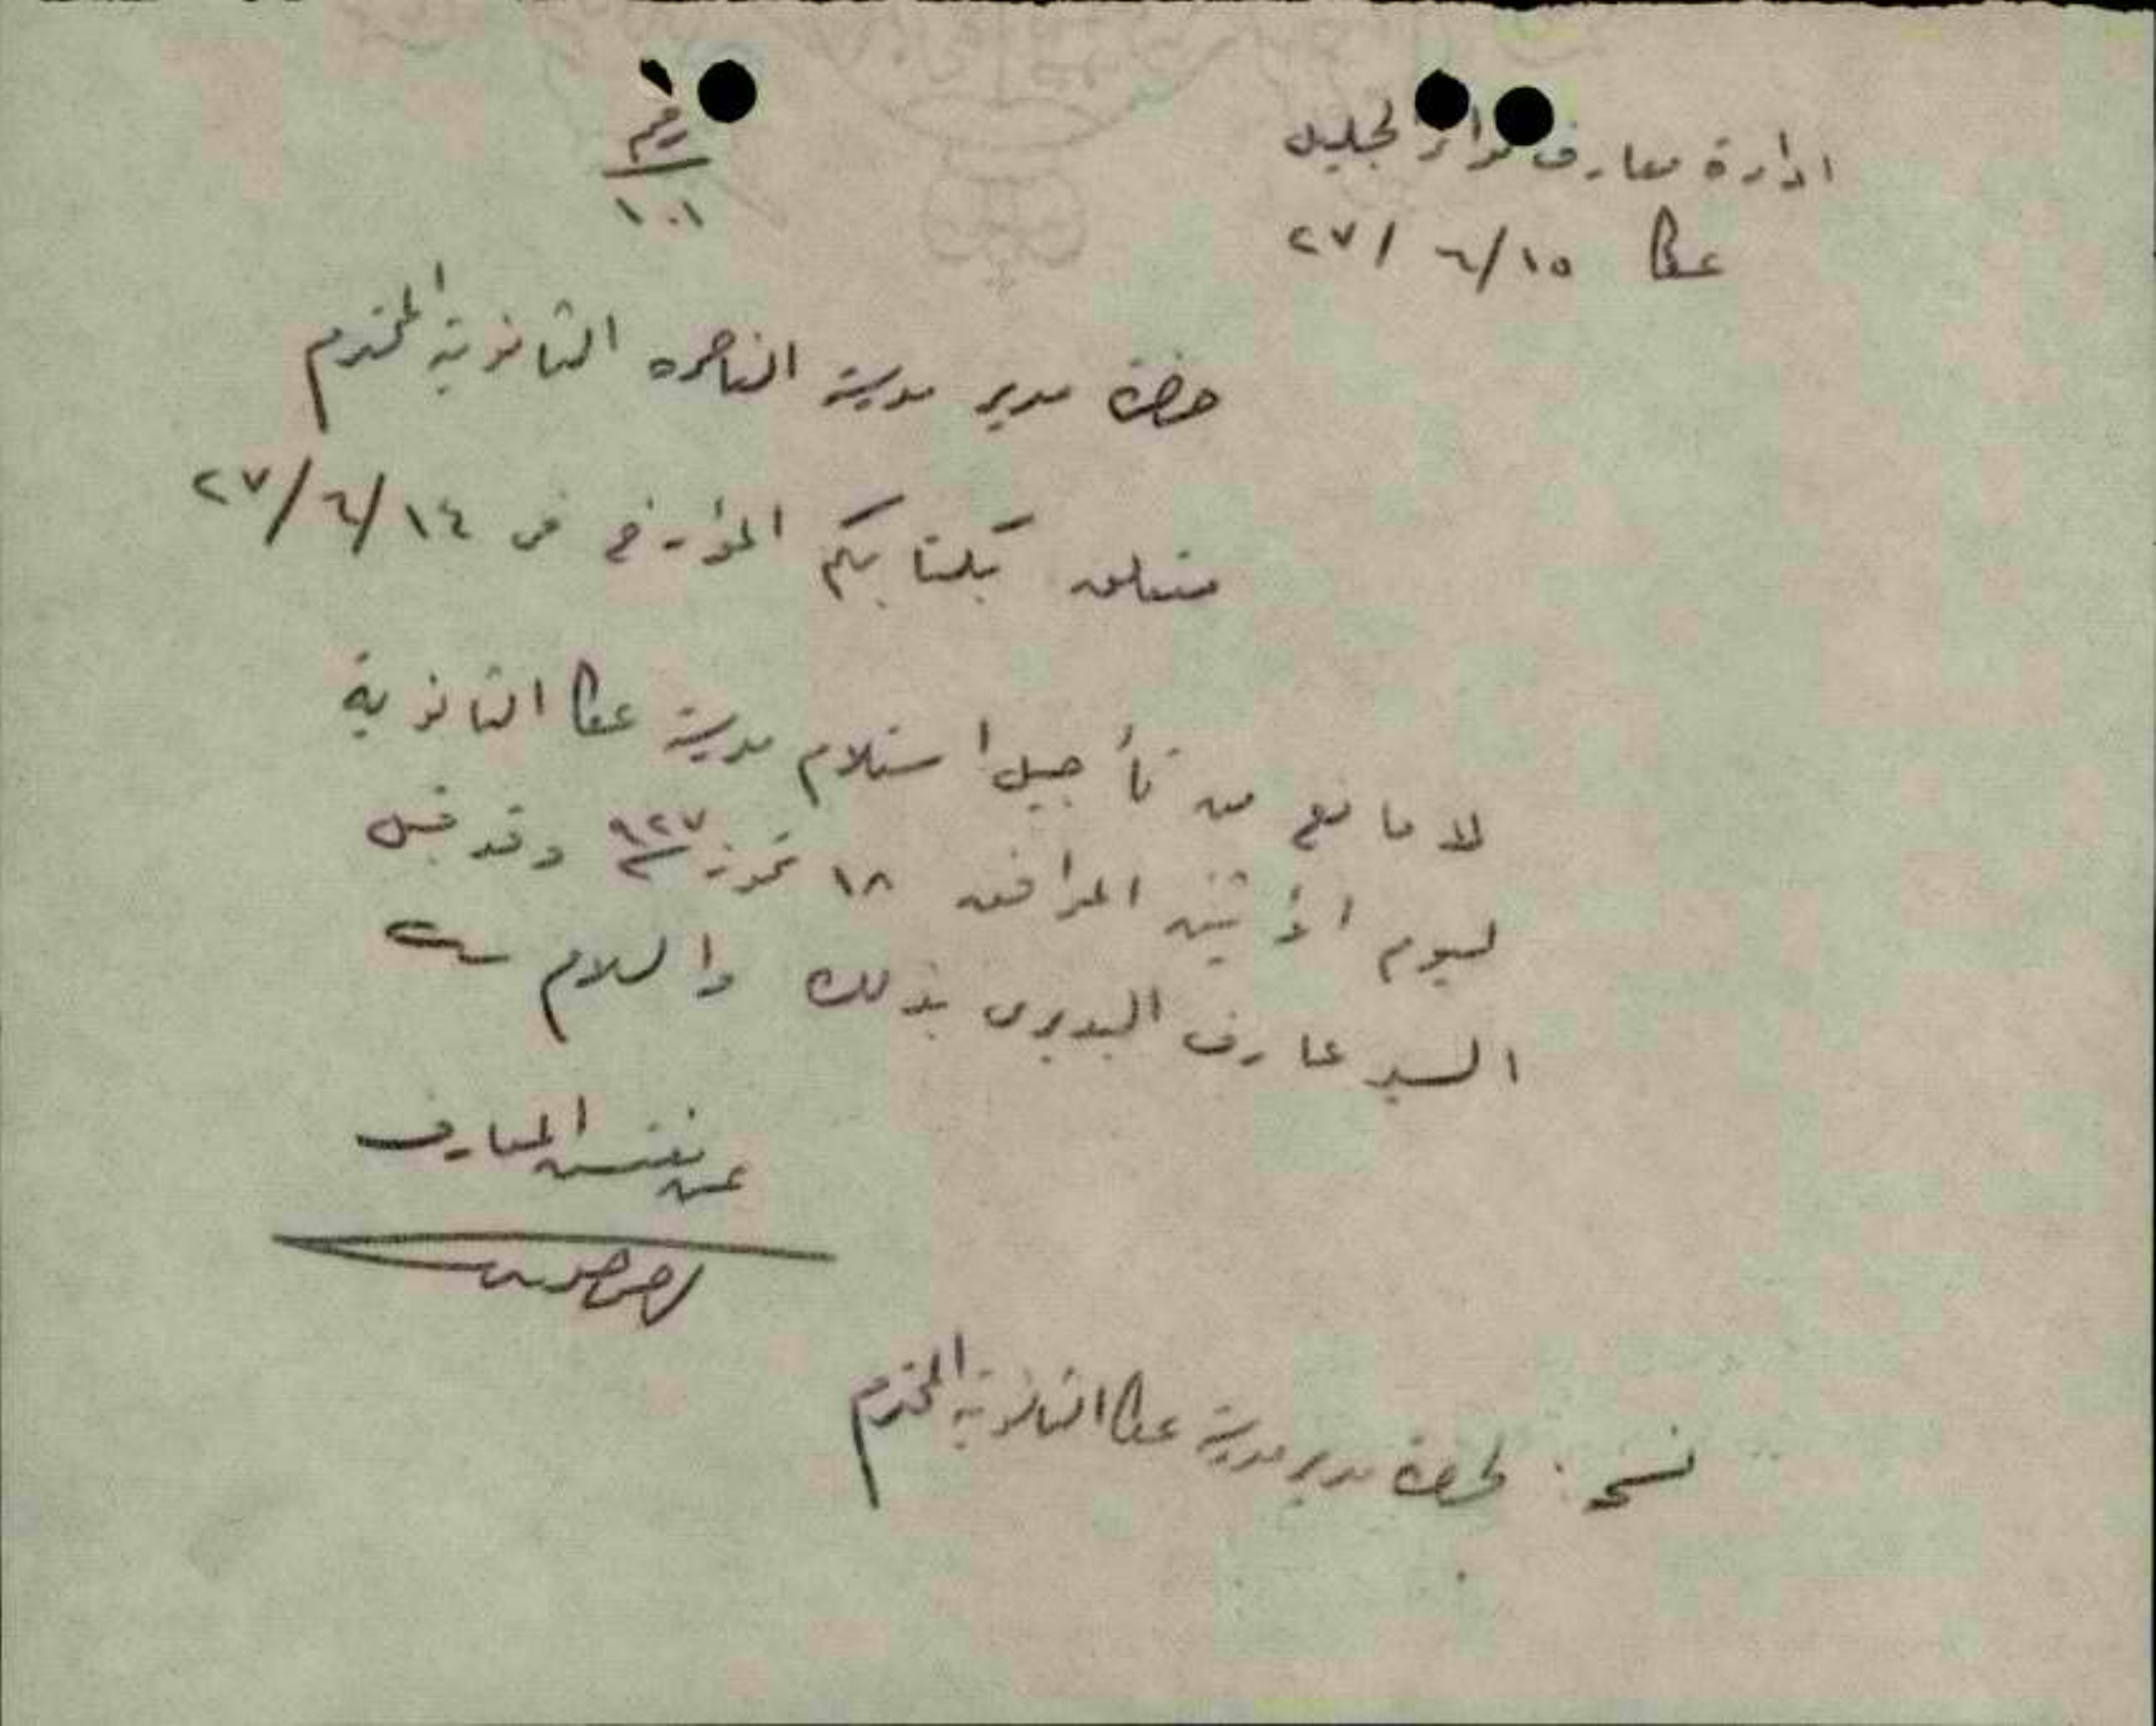 ادارة معارف لواء الجليل
رقم
١٠١
عكا ١٥/٦/٢٧
حضرة مدير مدرسة الناصره الثانوية المحترم
متعلق بكتابكم المؤرخ في ١٤/٦/٢٧
لا مانع من تأجيل استلام مدرسة عكا الثانوية
ليوم الأثنين الموافق ١٨ تموز ٩٢٧ وقد قبل
السيد عارف البديري بذلك والسلام
عن مفتش المعارف
نسخة: لحضرة مدير مدرسة عكا الثانوية المحترم